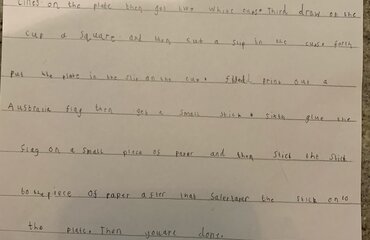 Lines on the plate then get two white cups. Third draw on the
cup a square and then cut a slip in the cups. forth
put the plate in the slip on the cup. print out a
Australia flag then get a small stick. sixth glue the
flag on a small piece of paper and then stick the stick
to the piece of paper after that the stick onto
the plate. Then you are done.